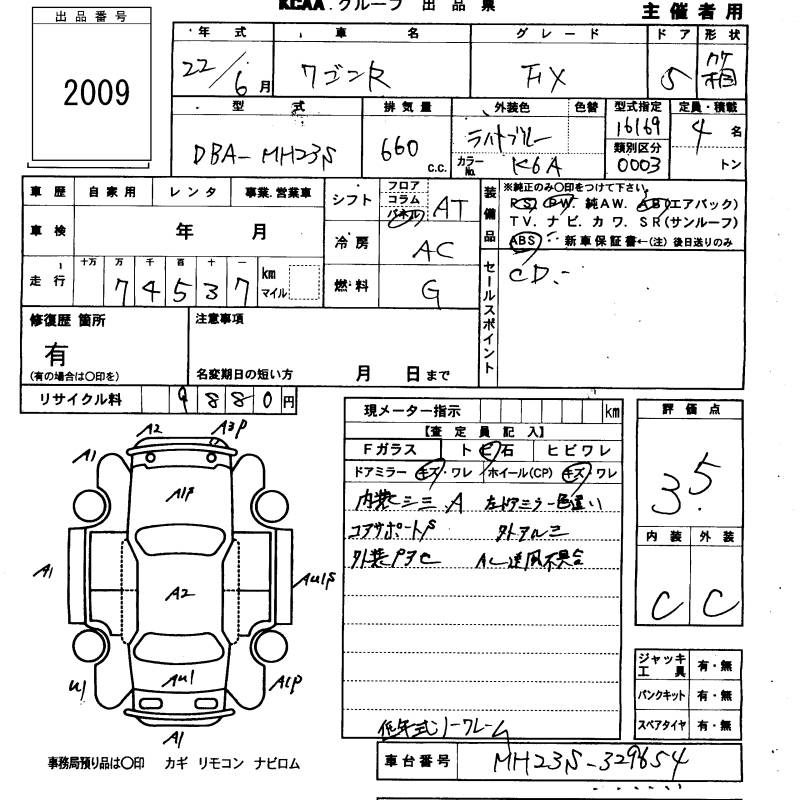 KCAA.グループ 出品票 主催者用
出品番号
2009
年式 車名 グレード ドア 形状
22/6月 ワゴンR FX 5 箱
型式 排気量 外装色 色替 型式指定 定員・積載
DBA-MH23S 660 c.c. ライトブルー 16169 4名
カラーNo. K6A 類別区分 0003 トン
車歴 自家用 レンタ 事業.営業車
車検 年 月
走行 十万 万 千 百 十 一
74537 km マイル
シフト フロア コラム パネル AT
冷房 AC
燃料 G
装備品 ※純正のみ○印をつけて下さい。
PS PW. 純AW. AB(エアバック)
TV. ナビ. カワ. SR(サンルーフ)
ABS 新車保証書←(注) 後日送りのみ
セールスポイント CD.
修復歴 箇所 注意事項
有
(有の場合は○印を) 名変期日の短い方 月 日まで
リサイクル料 9880円
現メーター指示 km
【査定員記入】
Fガラス トビ石 ヒビワレ
ドアミラー キズ・ワレ ホイール(CP) キズ・ワレ
内装シミ A 左ドアミラー色違い
コアサポートS 外アルミ
外装PヨC AC送風不具合
低年式ノークレーム
評価点
3.5
内装 外装
C C
ジャッキ工具 有・無
パンクキット 有・無
スペアタイヤ 有・無
車台番号 MH23S-329654
A2 A3P
A1
A1P
A1 A2 AU1S
U1 AU1 A1P
A1
事務局預り品は○印 カギ リモコン ナビロム